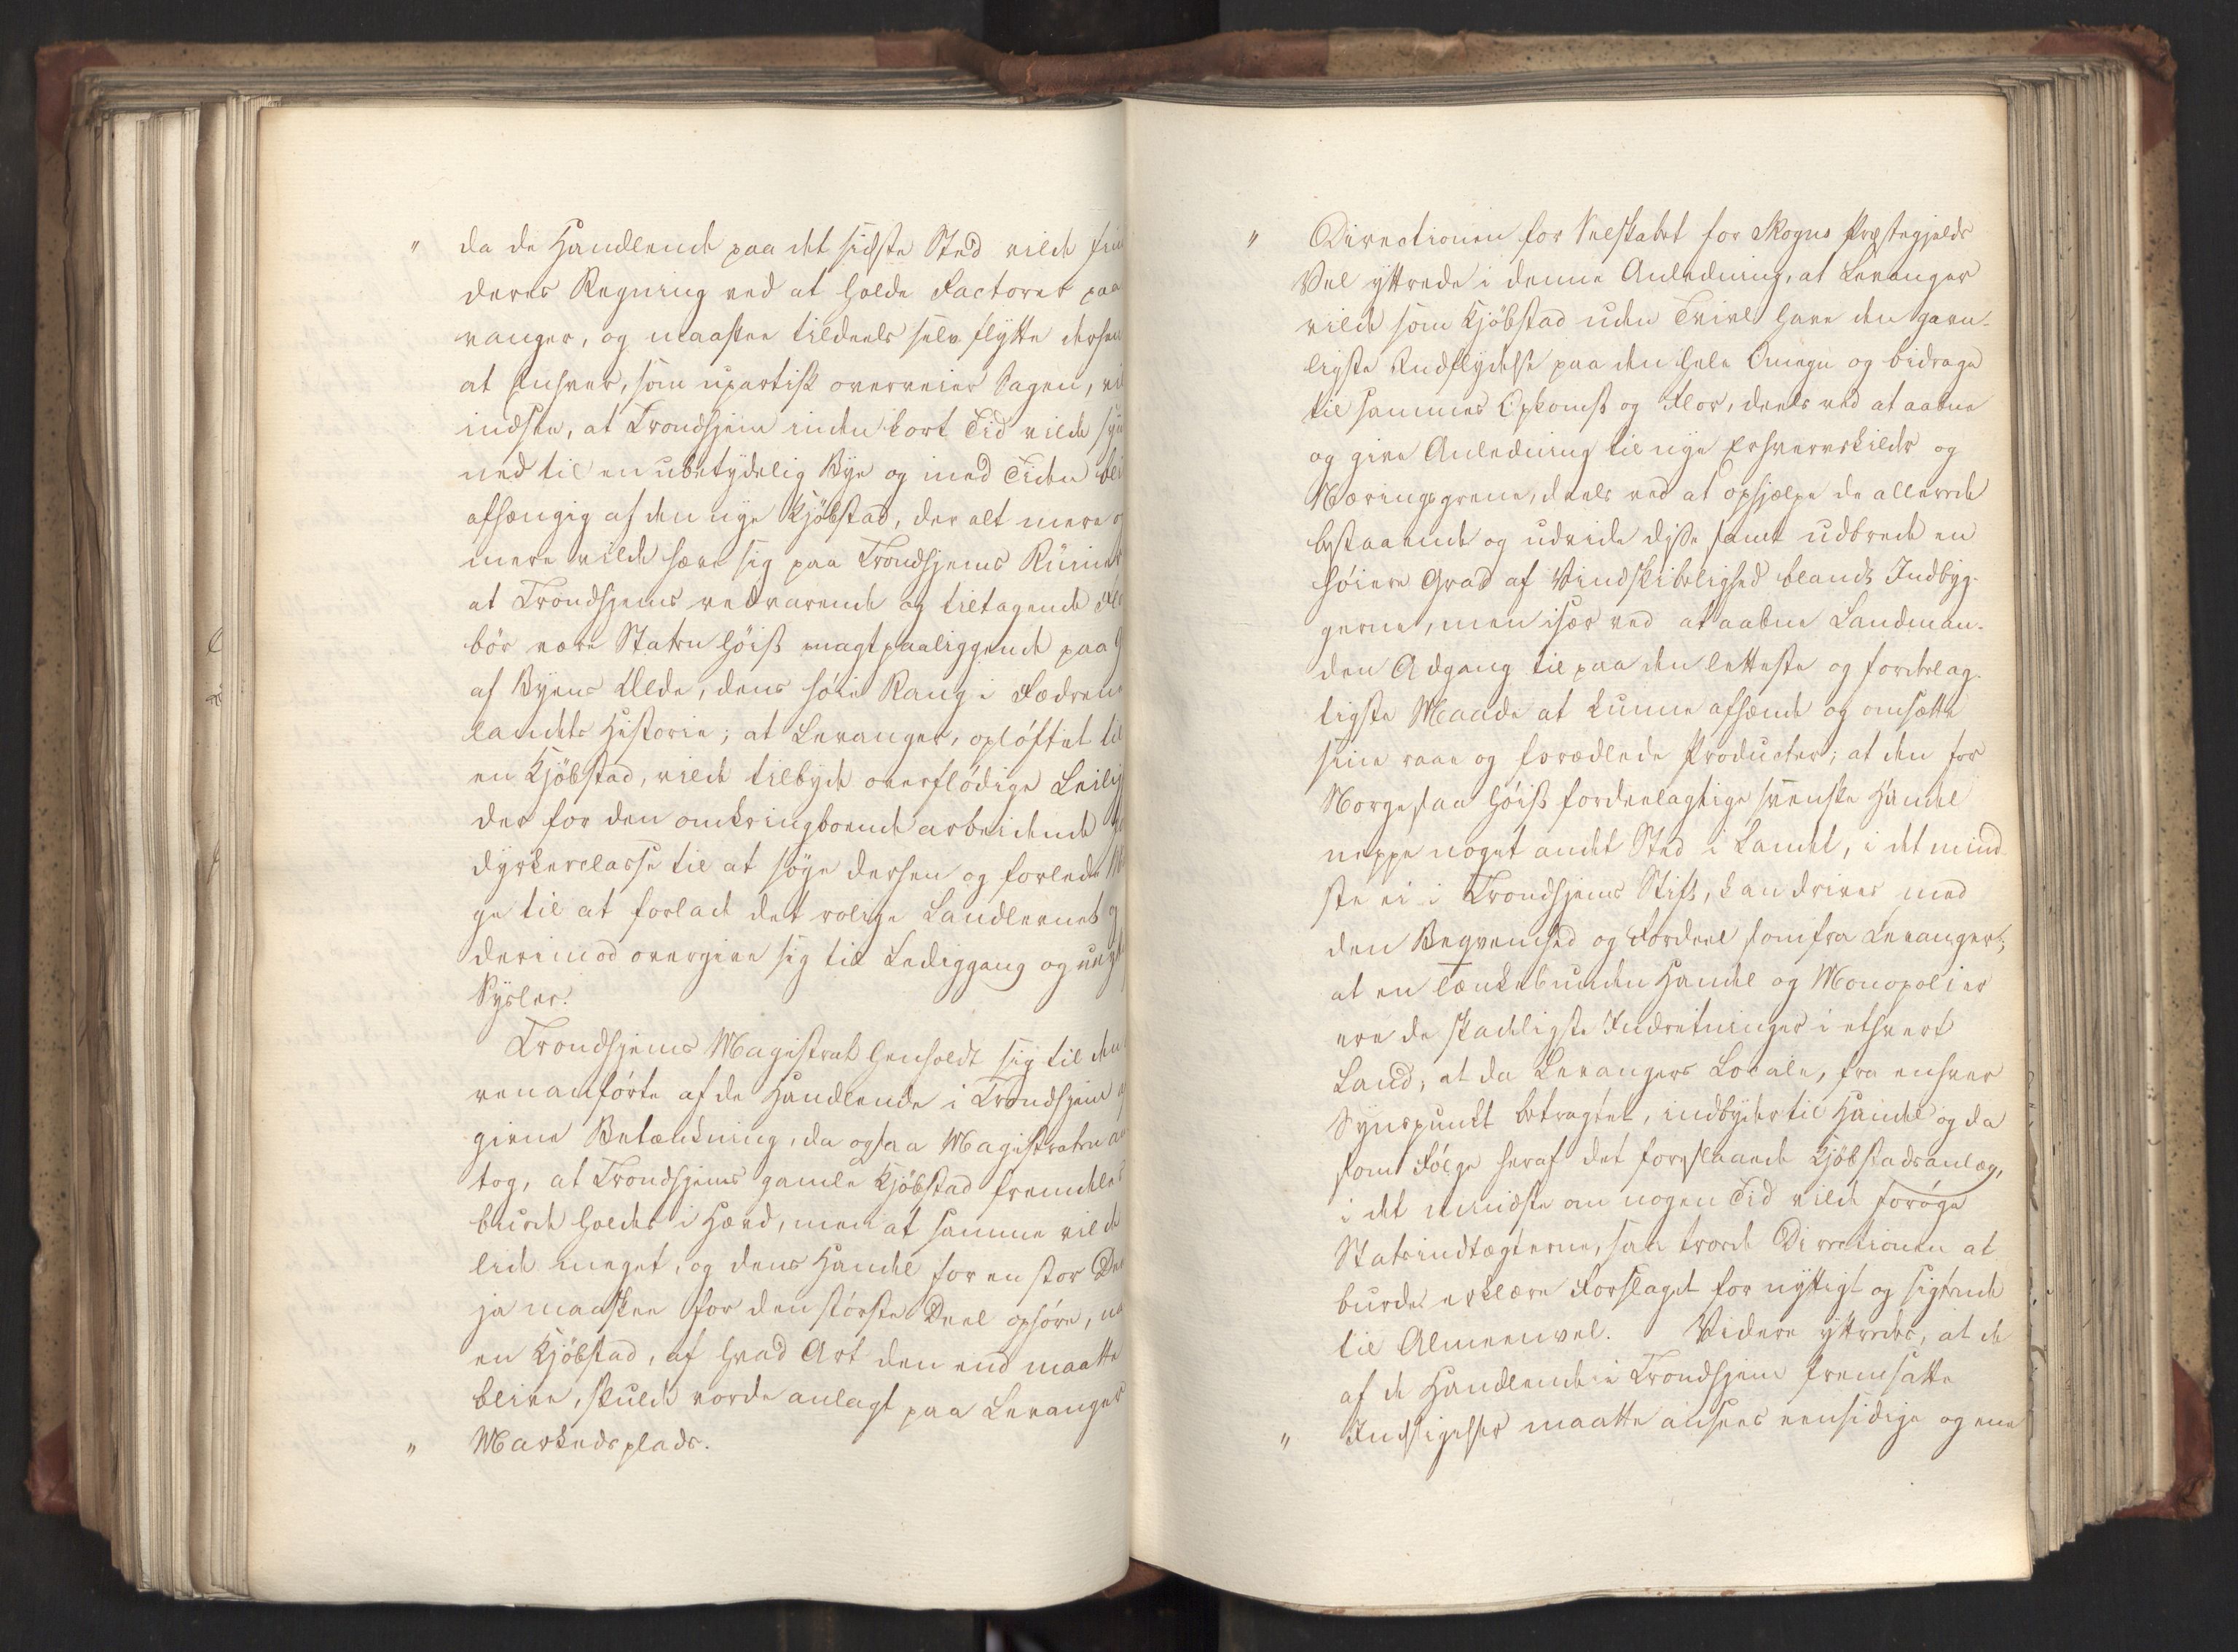 " da de Handlende paa det sidste Sted vilde fin
deres Regning ved at holde Factorer paa
vanger, og maaskee tildeels selv flytte derhen
at Enhver, som upartisk overveier Sagen, vil
indsee, at Trondhjem inden kort Tid vilde syn
ned til en ubetydelig Bye og med Tiden bli
afhængig af den nye Kjöbstad, der alt mere og
mere vilde hæve sig paa Trondhjems Ruiner
at Trondhjems vedvarende og tiltagende Flo
bör være Staten höist magtpaaliggende paa G
af Byens Ælde, dens höie Rang i Fædrene
landets Historie; at Levanger, oplöftet til
en Kjöbstad, vilde tilbyde overflödige Leilig
der for den omkringboende arbeidende
dyrkerclasse til at söge derhen og forlede
ge til at forlade det rolige Landlevnet og
derimod overgive sig til Lediggang og
Sysler.
Trondhjems Magistrat henholdt sig til den
venanförte af de Handlende i Trondhjem
givne Betænkning, da ogsaa Magistraten an
tog, at Trondhjems gamle Kjöbstad fremdeles
burde holdes i Hævd, men at samme vilde
lide meget, og dens Handel for en stor Deel
ja maaskee for den störste Deel ophöre, na
en Kjöbstad, af hvad Art den end maatte
blive, skulde vorde anlagt paa Levanger
" Markedsplads.
" Directionen for Selskabet for Skogns Præstegjelds
Vel yttrede i denne Anledning, at Levanger
vilde som Kjöbstad uden Tvivl have den gavn-
ligste Indflydelse paa den hele Omegn og bidrage
til sammes Opkomst og Flor, deels ved at aabne
og give Anledning til nye Erhvervskilder og
Næringsgrene, deels ved at ophjelpe de allerede
bestaaende og udvide disse samt udbrede en
höiere Grad af Vindskibelighed blandt Indbyg-
gerne, men især ved at aabne Landman-
den Adgang til paa den letteste og fordelag-
ligste Maade at kunne afhænde og omsætte
sine raae og forædlede Producter; at den for
Norge saa höist fordeelagtige svenske Handel
neppe noget andet Sted i Landet, i det mind-
ste ei i Trondhjems Stift, kan drives med
den Beqvemhed og Fordeel som fra Levanger;
at en lænkebunden Handel og Monopolier
ere de skadeligste Indretninger i ethvert
Land; at da Levangers Locale, fra enhver
Synspunkt betragtet, indbyder til Handel og da
som Fölge heraf det foreslaaede Kjöbstadsanlæg,
i det mindste om nogen Tid vilde foröge
Statsindtægterne, saa troede Directionen at
burde erklære Forslaget for nyttigt og sigtende
til Almeenvel. Videre yttredes, at de
af de Handlende i Trondhjem fremsatte
" Indsigelser maatte ansees eensidige og ene